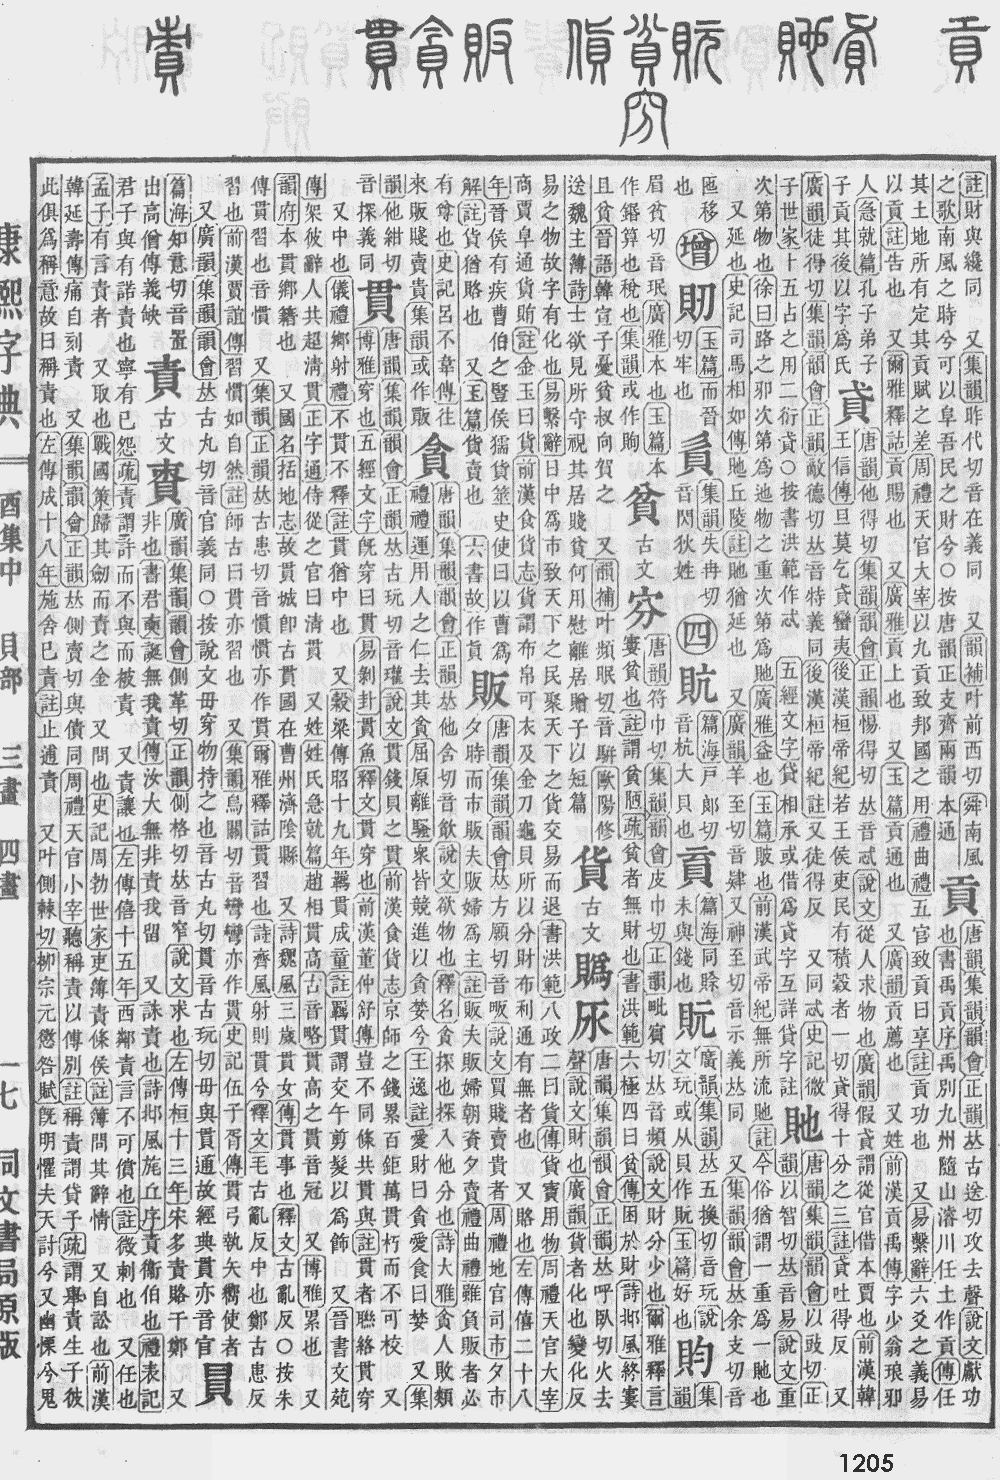 貢 貣 貤 貦 貧 貨 販 貪 貫 責
穷
註財與纔同 又集韻昨代切音在義同 又韻補叶前西切舜南風
之歌南風之時兮可以阜吾民之財兮○按唐韻正支齊兩韻本通 貢 唐韻集韻韻會正韻𠀤古送切攻去聲說文獻功
也書禹貢序禹別九州隨山濬川任土作貢傳任
其土地所有定其貢賦之差周禮天官大宰以九貢致邦國之用禮曲禮五官致貢曰享註貢功也 又易繫辭六爻之義易
以貢註告也 又爾雅釋詁貢賜也 又廣雅貢上也 又玉篇貢通也 又廣韻貢薦也 又姓前漢貢禹傳字少翁琅邪
人急就篇孔子弟子
子貢其後以字爲氏 貣 唐韻他得切集韻韻會正韻惕得切𠀤音忒說文從人求物也廣韻假貣謂從官借本賈也前漢韓
王信傳旦暮乞貣蠻夷後漢桓帝紀若王侯吏民有積穀者一切貣得十分之三註貣吐得反 又
廣韻徒得切集韻韻會正韻敵德切𠀤音特義同後漢桓帝紀註又徒得反 又同忒史記微
子世家十五占之用二衍貣○按書洪範作忒 五經文字貸相承或借爲貣字互詳貸字註 貤 唐韻集韻韻會以豉切正
韻以智切𠀤音易說文重
次第物也徐曰路之邪次第爲迆物之重次第爲貤廣雅益也玉篇貱也前漢武帝紀無所流貤註今俗猶謂一重爲一貤也
又延也史記司馬相如傳貤丘陵註貤猶延也 又廣韻羊至切音肄又神至切音示義𠀤同 又集韻韻會𠀤余支切音
匜移
也 增 貹 玉篇而晉
切牢也 貟 集韻失冉切
音閃狄姓 四 貥 篇海戸郎切
音杭大貝也 貢 篇海同賖
未與錢也 貦 廣韻集韻𠀤五換切音玩說
文玩或从貝作貦玉篇好也 盷 集
韻
眉貧切音珉廣雅本也玉篇本
作鍲算也稅也集韻或作䀏 貧 古文 穷 唐韻符巾切集韻韻會皮巾切正韻毗賔切𠀤音頻說文財分少也爾雅釋言
窶貧也註謂貧陋疏貧者無財也書洪範六極四曰貧傳困於財詩邶風終窶
且貧晉語韓宣子憂貧叔向賀之 又韻補叶頻眠切音騈歐陽修
送魏主簿詩士欲見所守視其居賤貧何用慰離居贈子以短篇 貨 古文 䞈𡲎 唐韻集韻韻會正韻𠀤呼臥切火去
聲說文財也廣韻貨者化也變化反
易之物故字有化也易繫辭日中爲市致天下之民聚天下之貨交易而退書洪範八政二曰貨傳貨寳用物周禮天官大宰
商賈阜通貨賄註金玉曰貨前漢食貨志貨謂布帛可衣及金刀龜貝所以分財布利通有無者也 又賂也左傳僖二十八
年晉侯有疾曹伯之豎侯獳貨筮史使曰以曹爲
解註貨猶賂也 又玉篇貨賣也 六書故作貟 販 唐韻集韻韻會𠀤方願切音畈說文買賤賣貴者周禮地官司市夕市
夕時而市販夫販婦爲主註販夫販婦朝資夕賣禮曲禮雖負販者必
有尊也史記呂不韋傳往
來販賤賣貴集韻或作䉒 貪 唐韻集韻韻會正韻𠀤他含切音飮說文欲物也釋名貪探也探入他分也詩大雅貪人敗類
禮禮運用人之仁去其貪屈原離騷衆皆競進以貪婪兮王逸註愛財曰貪愛食曰婪 又集
韻他紺切
音探義同 貫 唐韻集韻韻會正韻𠀤古玩切音瓘說文貫錢貝之貫前漢食貨志京師之錢累百鉅萬貫朽而不可校 又
博雅穿也五經文字旣穿曰貫易剝卦貫魚釋文貫穿也前漢董仲舒傳豈不同條共貫與註貫者聯絡貫穿
又中也儀禮鄉射禮不貫不釋註貫猶中也 又穀梁傳昭十九年羈貫成童註羈貫謂交午剪髮以爲飾 又晉書文苑
傳架彼辭人共超淸貫正字通侍從之官曰淸貫 又姓姓氏急就篇趙相貫高古音略貫高之貫音冠 又博雅累也 又
韻府本貫鄉籍也 又國名括地志故貫城卽古貫國在曹州濟陰縣 又詩魏風三歲貫女傳貫事也釋文古亂反○按朱
傳貫習也音慣 又集韻正韻𠀤古患切音慣慣亦作貫爾雅釋詁貫習也詩齊風射則貫兮釋文毛古亂反中也鄭古患反
習也前漢賈誼傳習慣如自然註師古曰貫亦習也 又集韻烏關切音彎彎亦作貫史記伍子胥傳貫弓執矢嚮使者
又廣韻集韻韻會𠀤古丸切音官義同○按說文毋穿物持之也音古丸切貫音古玩切毋與貫通故經典貫亦音官 貝
篇海知意切音置
出高僧傳義缺 責 古文 賷 廣韻集韻韻會側革切正韻側格切𠀤音窄說文求也左傳桓十三年宋多責賂于鄭 又
非也書君奭誕無我責傳汝大無非責我留 又誅責也詩邶風旄丘序責衞伯也禮表記
君子與有諾責也寧有已怨疏責謂許而不與而被責 又責讓也左傳僖十五年西鄰責言不可償也註徵剌也 又任也
孟子有言責者 又取也戰國策歸其劒而責之金 又問也史記周勃世家吏簿責條侯註簿問其辭情 又自訟也前漢
韓延壽傳痛自刻責 又集韻韻會正韻𠀤側賣切與債同周禮天官小宰聽稱責以傅別註稱責謂貸子疏謂舉責生子彼
此俱爲稱意故曰稱責也左傳成十八年施舍已責註止逋責 又叶側棘切柳宗元懲咎賦旣明懼夫天討兮又幽慄兮鬼
康熙字典
酉集中 貝部 三畫 四畫
一七 同文書局原版
1205